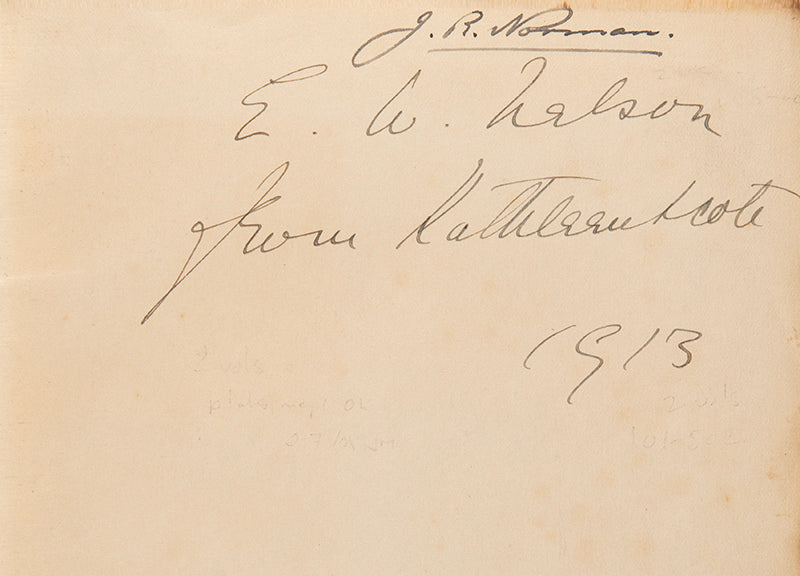 J. R. Norman.
E. W. Nelson
from Kathleen Scott
1913
2 vols
2 vols